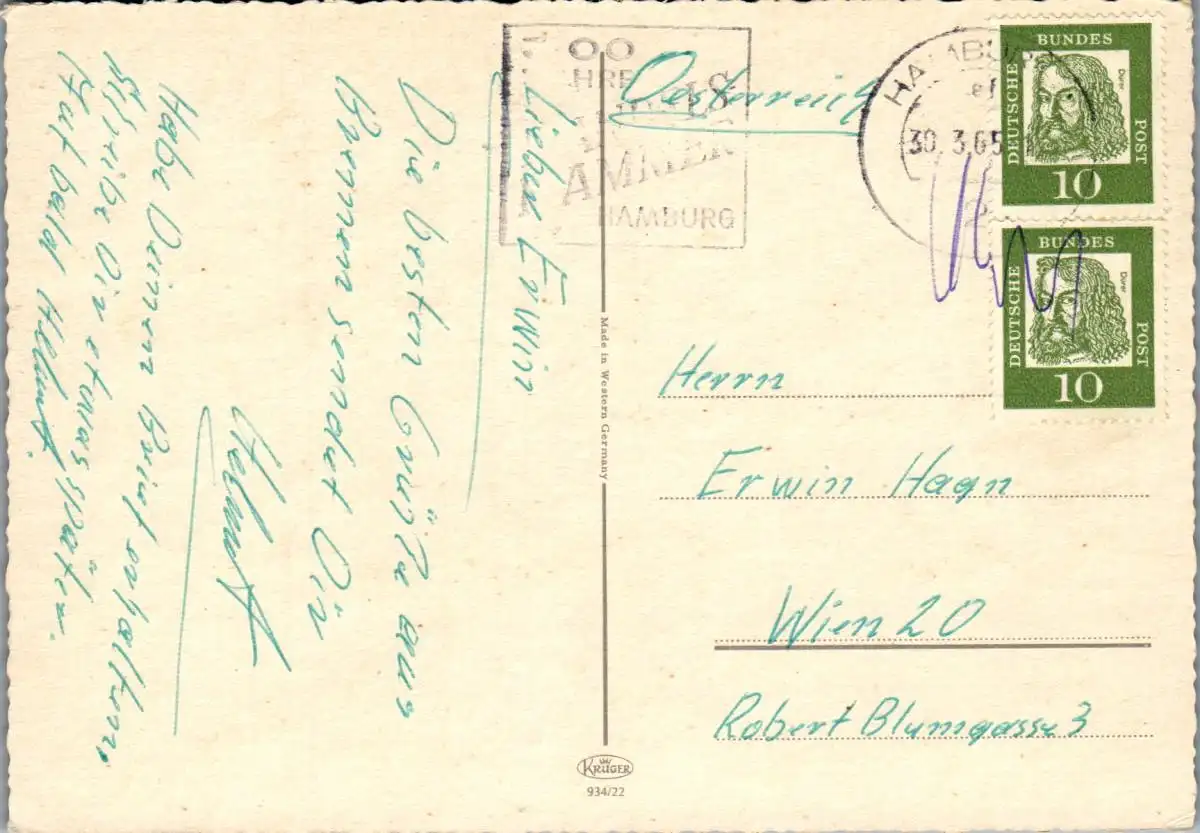 Lieber Erwin
Die besten Grüße aus
Bremen sendet Dir
Helmut
Habe Deinen Brief erhalten,
schreibe Dir etwas später.
Gut bald Helmut.
OO
HRE
HAMBURG
Oesterreich
HAMBURG
30. 3.65
BUNDES
DEUTSCHE
POST
Dürer
10
BUNDES
DEUTSCHE
POST
Dürer
10
Herrn
Erwin Hagn
Wien 20
Robert Blumgasse 3
Made in Western Germany
KRÜGER
934/22